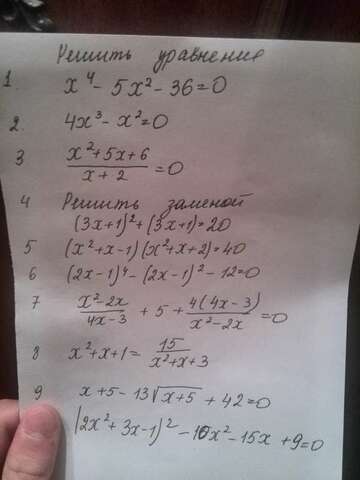 Решить уравнения
1. x⁴ - 5x² - 36 = 0
2. 4x³ - x² = 0
3 (x² + 5x + 6)/(x + 2) = 0
4 Решить заменой
(3x+1)² + (3x+1) = 20
5 (x² + x - 1)(x² + x + 2) = 40
6 (2x-1)⁴ - (2x-1)² - 12 = 0
7 (x² - 2x)/(4x - 3) + 5 + 4(4x - 3)/(x² - 2x) = 0
8 x² + x + 1 = 15/(x² + x + 3)
9 x + 5 - 13√(x+5) + 42 = 0
(2x² + 3x - 1)² - 10x² - 15x + 9 = 0